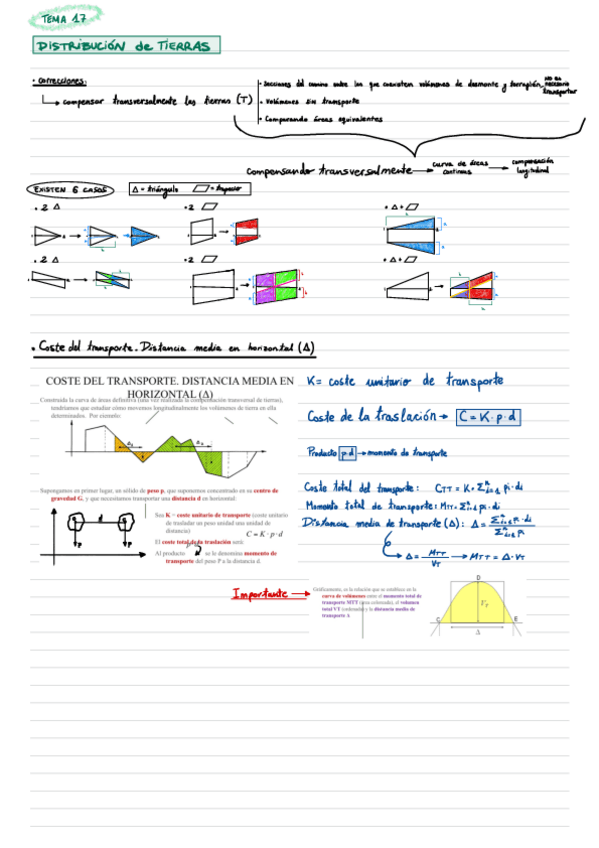 TEMA 17
DISTRIBUCIÓN de TIERRAS
• correcciones:
↳ compensar transversalmente las tierras (T)
• Secciones del camino entre las que coexisten volúmenes de desmonte y terraplén no es necesario transportar
• Volúmenes sin transporte
• Comparando áreas equivalentes
compensando transversalmente → curva de áreas continuas → compensación longitudinal
EXISTEN 6 CASOS
Δ = triángulo ▱ = trapecio
• 2 Δ
• 2 ▱
• Δ + ▱
• 2 Δ
• 2 ▱
• Δ + ▱
• Coste del transporte. Distancia media en horizontal (Δ)
COSTE DEL TRANSPORTE. DISTANCIA MEDIA EN
HORIZONTAL (Δ)
Construida la curva de áreas definitiva (una vez realizada la compensación transversal de tierras),
tendríamos que estudiar cómo movemos longitudinalmente los volúmenes de tierra en ella
determinados. Por ejemplo:
Supongamos en primer lugar, un sólido de peso p, que suponemos concentrado en su centro de
gravedad G, y que necesitamos transportar una distancia d en horizontal:
d
P
P
Sea K = coste unitario de transporte (coste unitario
de trasladar un peso unidad una unidad de
distancia)
C = K · p · d
El coste total de la traslación será:
Al producto se le denomina momento de
transporte del peso P a la distancia d.
K = coste unitario de transporte
Coste de la traslación → C = K · p · d
Producto p d → momento de transporte
Coste total del transporte: CTT = K · Σⁿᵢ₌₁ pi · di
Momento total de transporte: MTT = Σⁿᵢ₌₁ pi · di
Distancia media de transporte (Δ): Δ = Σⁿᵢ₌₁ pi · di / Σⁿᵢ₌₁ pi
Δ = MTT / VT → MTT = Δ · VT
Importante →
Gráficamente, es la relación que se establece en la
curva de volúmenes entre el momento total de
transporte MTT (área coloreada), el volumen
total VT (ordenada) y la distancia media de
transporte Δ
D
V_T
C
E
Δ